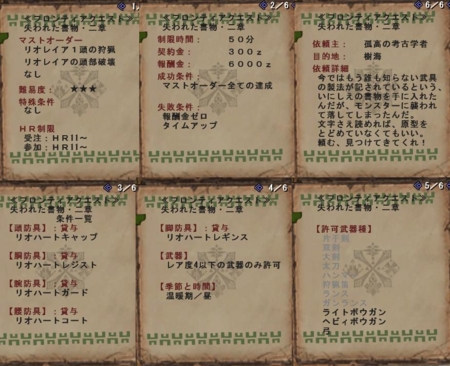 1/
フロンティアクエスト
失われた書物・二章
マストオーダー
リオレイア1頭の狩猟
リオレイアの頭部破壊
なし
難易度：★★★
特殊条件
なし
HR制限
受注：HR11～
参加：HR11～
2/6
フロンティアクエスト
失われた書物・二章
制限時間：　50分
契約金：　300z
報酬金：　6000z
成功条件
マストオーダー全ての達成
失敗条件：
報酬金ゼロ
タイムアップ
6/6
フロンティアクエスト
失われた書物・二章
依頼主：　孤高の考古学者
目的地：　樹海
依頼詳細
今ではもう誰も知らない武具
の製法が記されているという、
いにしえの書物を手に入れた
んだが、モンスターに襲われ
て落してしまったんだ。
文字さえ読めれば、原型を
とどめていなくてもいい。
頼む、見つけてきてくれ！
3/6
フロンティアクエスト
失われた書物・二章
条件一覧
【頭防具】：貸与
リオハートキャップ
【胴防具】：貸与
リオハートレジスト
【腕防具】：貸与
リオハートガード
【腰防具】：貸与
リオハートコート
4/6
フロンティアクエスト
失われた書物・二章
【脚防具】：貸与
リオハートレギンス
【武器】
レア度4以下の武器のみ許可
【季節と時間】
温暖期／昼
5/6
フロンティアクエスト
失われた書物・二章
【許可武器種】
片手剣
双剣
大剣
太刀
ハンマー
狩猟笛
ランス
ガンランス
ライトボウガン
ヘビィボウガン
弓